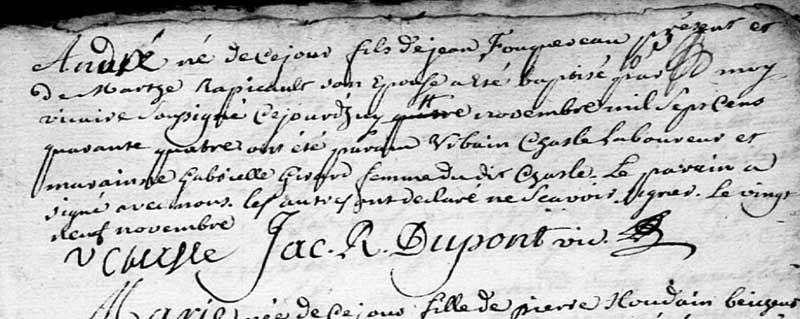 André né de ce jour fils de jean Fouquereau présent et
de Marthe Rapicault son Epouse a été baptisé par moy
vicaire soussigné ce jourdhuy quattre novembre mil sept cens
quarante quatre ont été parain Vrbain Chasle laboureur et
maraine Gabrielle Girard femme du dit Chasle. Le parain a
signé avec nous. les autres ont declaré ne sçavoir signer. Le vingt
neuf novembre
V Chasle Jac. R. Dupont vic.
Marie née de ce jour fille de pierre Houdain